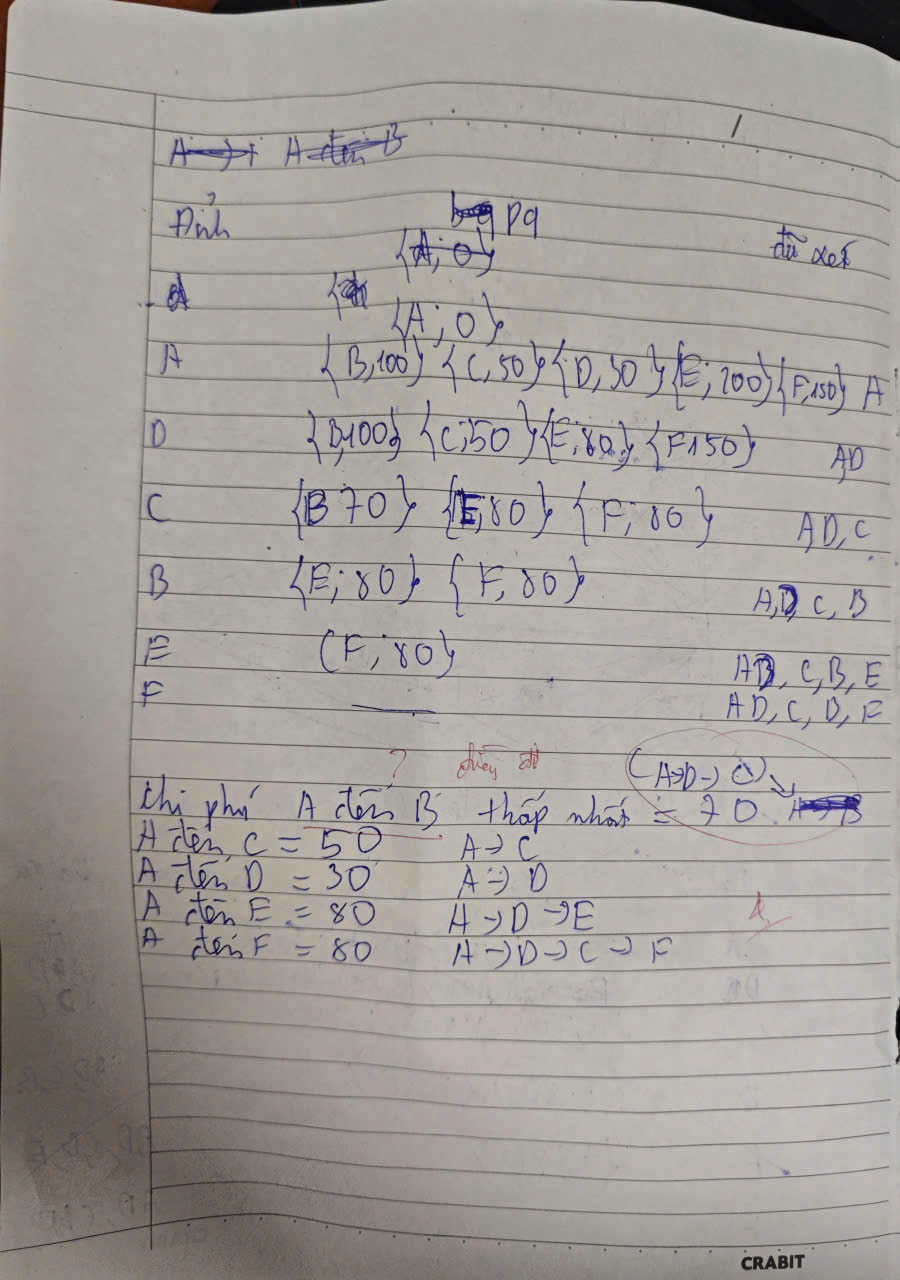 A → A đến B
Đỉnh pq đã xét
{A; 0}
{A; 0}
A {B,100} {C,50} {D,30} {E; 200} {F,150} A
D {B,100} {C;50} {E;80} {F150} A,D
C {B 70} {E;80} {F; 80} A,D,C
B {E; 80} {F, 80} A,D, C, B
E {F; 80} AD, C, B, E
F AD, C, D, F
?
(A→D→C)
chi phí A đến B thấp nhất = 70 A→B
A đến C = 50 A→C
A đến D = 30 A→D
A đến E = 80 A→D→E
A đến F = 80 A→D→C→F
CRABIT